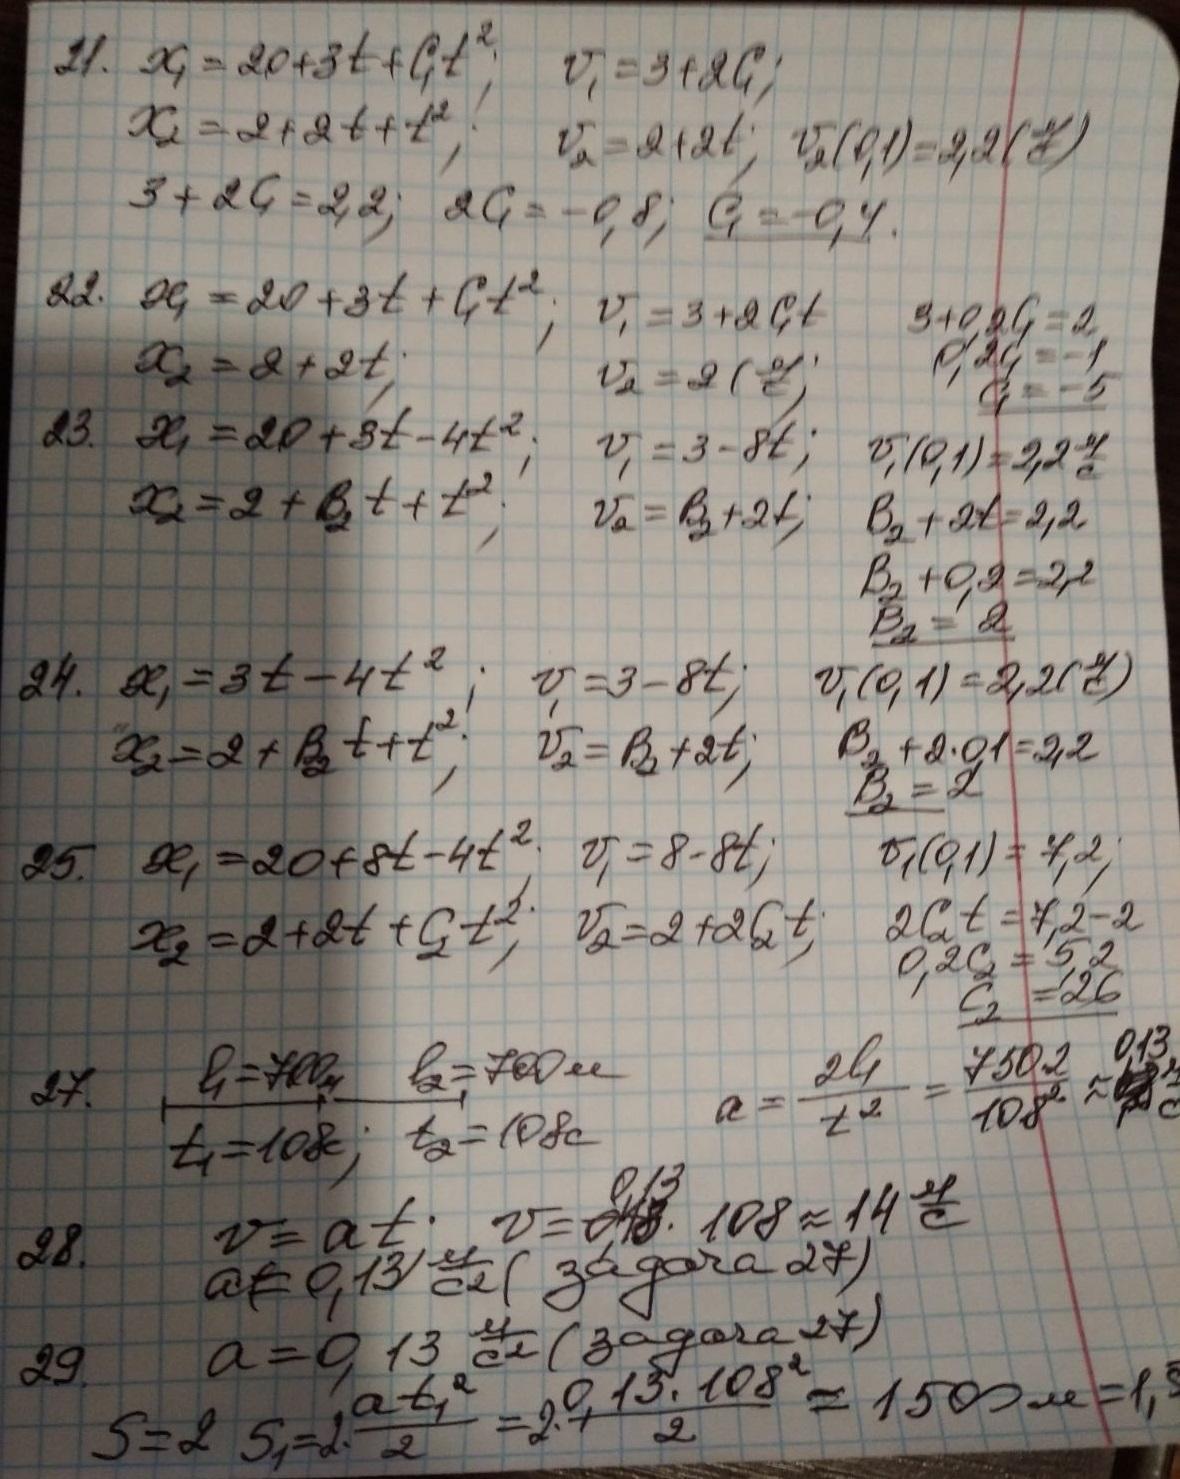 21. x₁ = 20+3t+C₁t²; v₁ = 3+2C₁;
x₂ = 2+2t+t²; v₂ = 2+2t; v₂(0,1)=2,2(м/с)
3+2C₁=2,2; 2C₁=-0,8; C₁=-0,4.
22. x₁ = 20+3t+C₁t²; v₁ = 3+2C₁t 3+0,2C₁=2
x₂ = 2+2t; v₂ = 2(м/с); 0,2C₁=-1
C₁ = -5
23. x₁ = 20+3t-4t²; v₁ = 3-8t; v₁(0,1)=2,2 м/с
x₂ = 2+B₂t+t²; v₂ = B₂+2t; B₂+2t=2,2
B₂+0,2=2,2
B₂ = 2
24. x₁ = 3t-4t²; v₁ = 3-8t; v₁(0,1)=2,2(м/с)
x₂ = 2+B₂t+t²; v₂ = B₂+2t; B₂+2·0,1=2,2
B₂ = 2
25. x₁ = 20+8t-4t²; v₁ = 8-8t; v₁(0,1)=7,2;
x₂ = 2+2t+C₂t²; v₂ = 2+2C₂t; 2C₂t=7,2-2
0,2C₂=5,2
C₂ = 26
27. l₁=700м l₂=700м a = 2l₁/t² = 750·2/108² ≈ 0,13 м/с
t₁=108с; t₂=108с
28. v = at; v = 0,13·108 ≈ 14 м/с
a = 0,13 м/с² (задача 27)
29. a = 0,13 м/с² (задача 27)
S = 2 S₁ = 2·at₁²/2 = 2·0,13·108²/2 = 1500м = 1,5